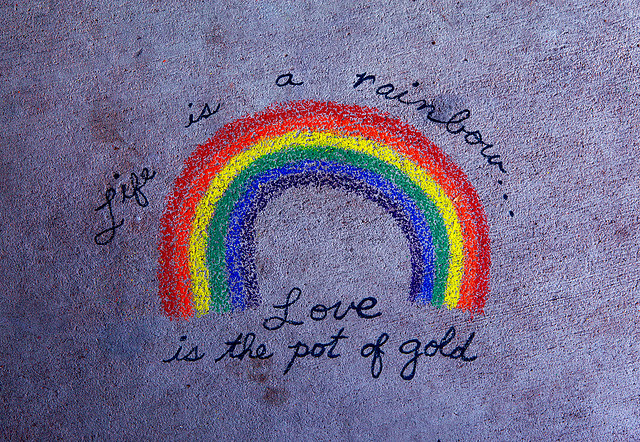 Life is a rainbow...
Love
is the pot of gold